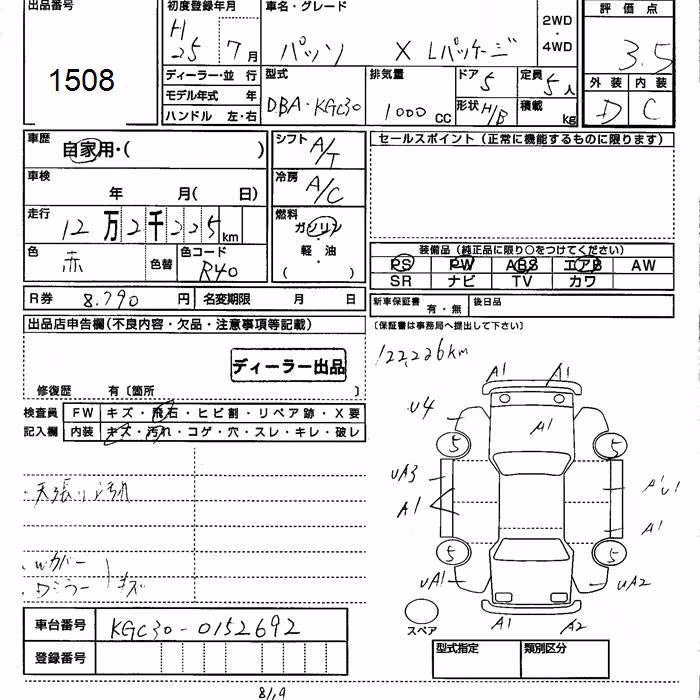 出品番号
1508
初度登録年月
H25 7月
車名・グレード
パッソ X Lパッケージ
2WD・4WD
評価点
3.5
外装 内装
D C
ディーラー・並行
モデル年式 年
ハンドル 左・右
型式
DBA・KGC30
排気量
1000 CC
ドア 5
形状 H/B
定員 5人
積載 kg
車歴 自家用・( )
車検 年 月( 日)
走行 12万2千225km
色 赤 色替
色コード R40
シフト A/T
冷房 A/C
燃料 ガソリン
軽・油
( )
セールスポイント(正常に機能するものに限ります)
装備品(純正品に限り○をつけてください)
PS PW ABS エアB AW
SR ナビ TV カワ
R券 8.790円 名変期限 月 日
新車保証書 有・無 後日品
(保証書は事務局へ提出して下さい)
出品店申告欄(不良内容・欠品・注意事項等記載)
ディーラー出品
修復歴 有〔箇所 〕
検査員 FW キズ・飛石・ヒビ割・リペア跡・X要
記入欄 内装 キズ・汚れ・コゲ・穴・スレ・キレ・破レ
122,226km
A1 A1
U4 A1
5 5
UA3 A1 U1
A1 A1
5 5
UA1 UA2
スペア A1 A2
・天張り汚れ
・Wカバー
・Dミラー キズ
車台番号 KGC30-0152692
登録番号
型式指定 類別区分
8/19